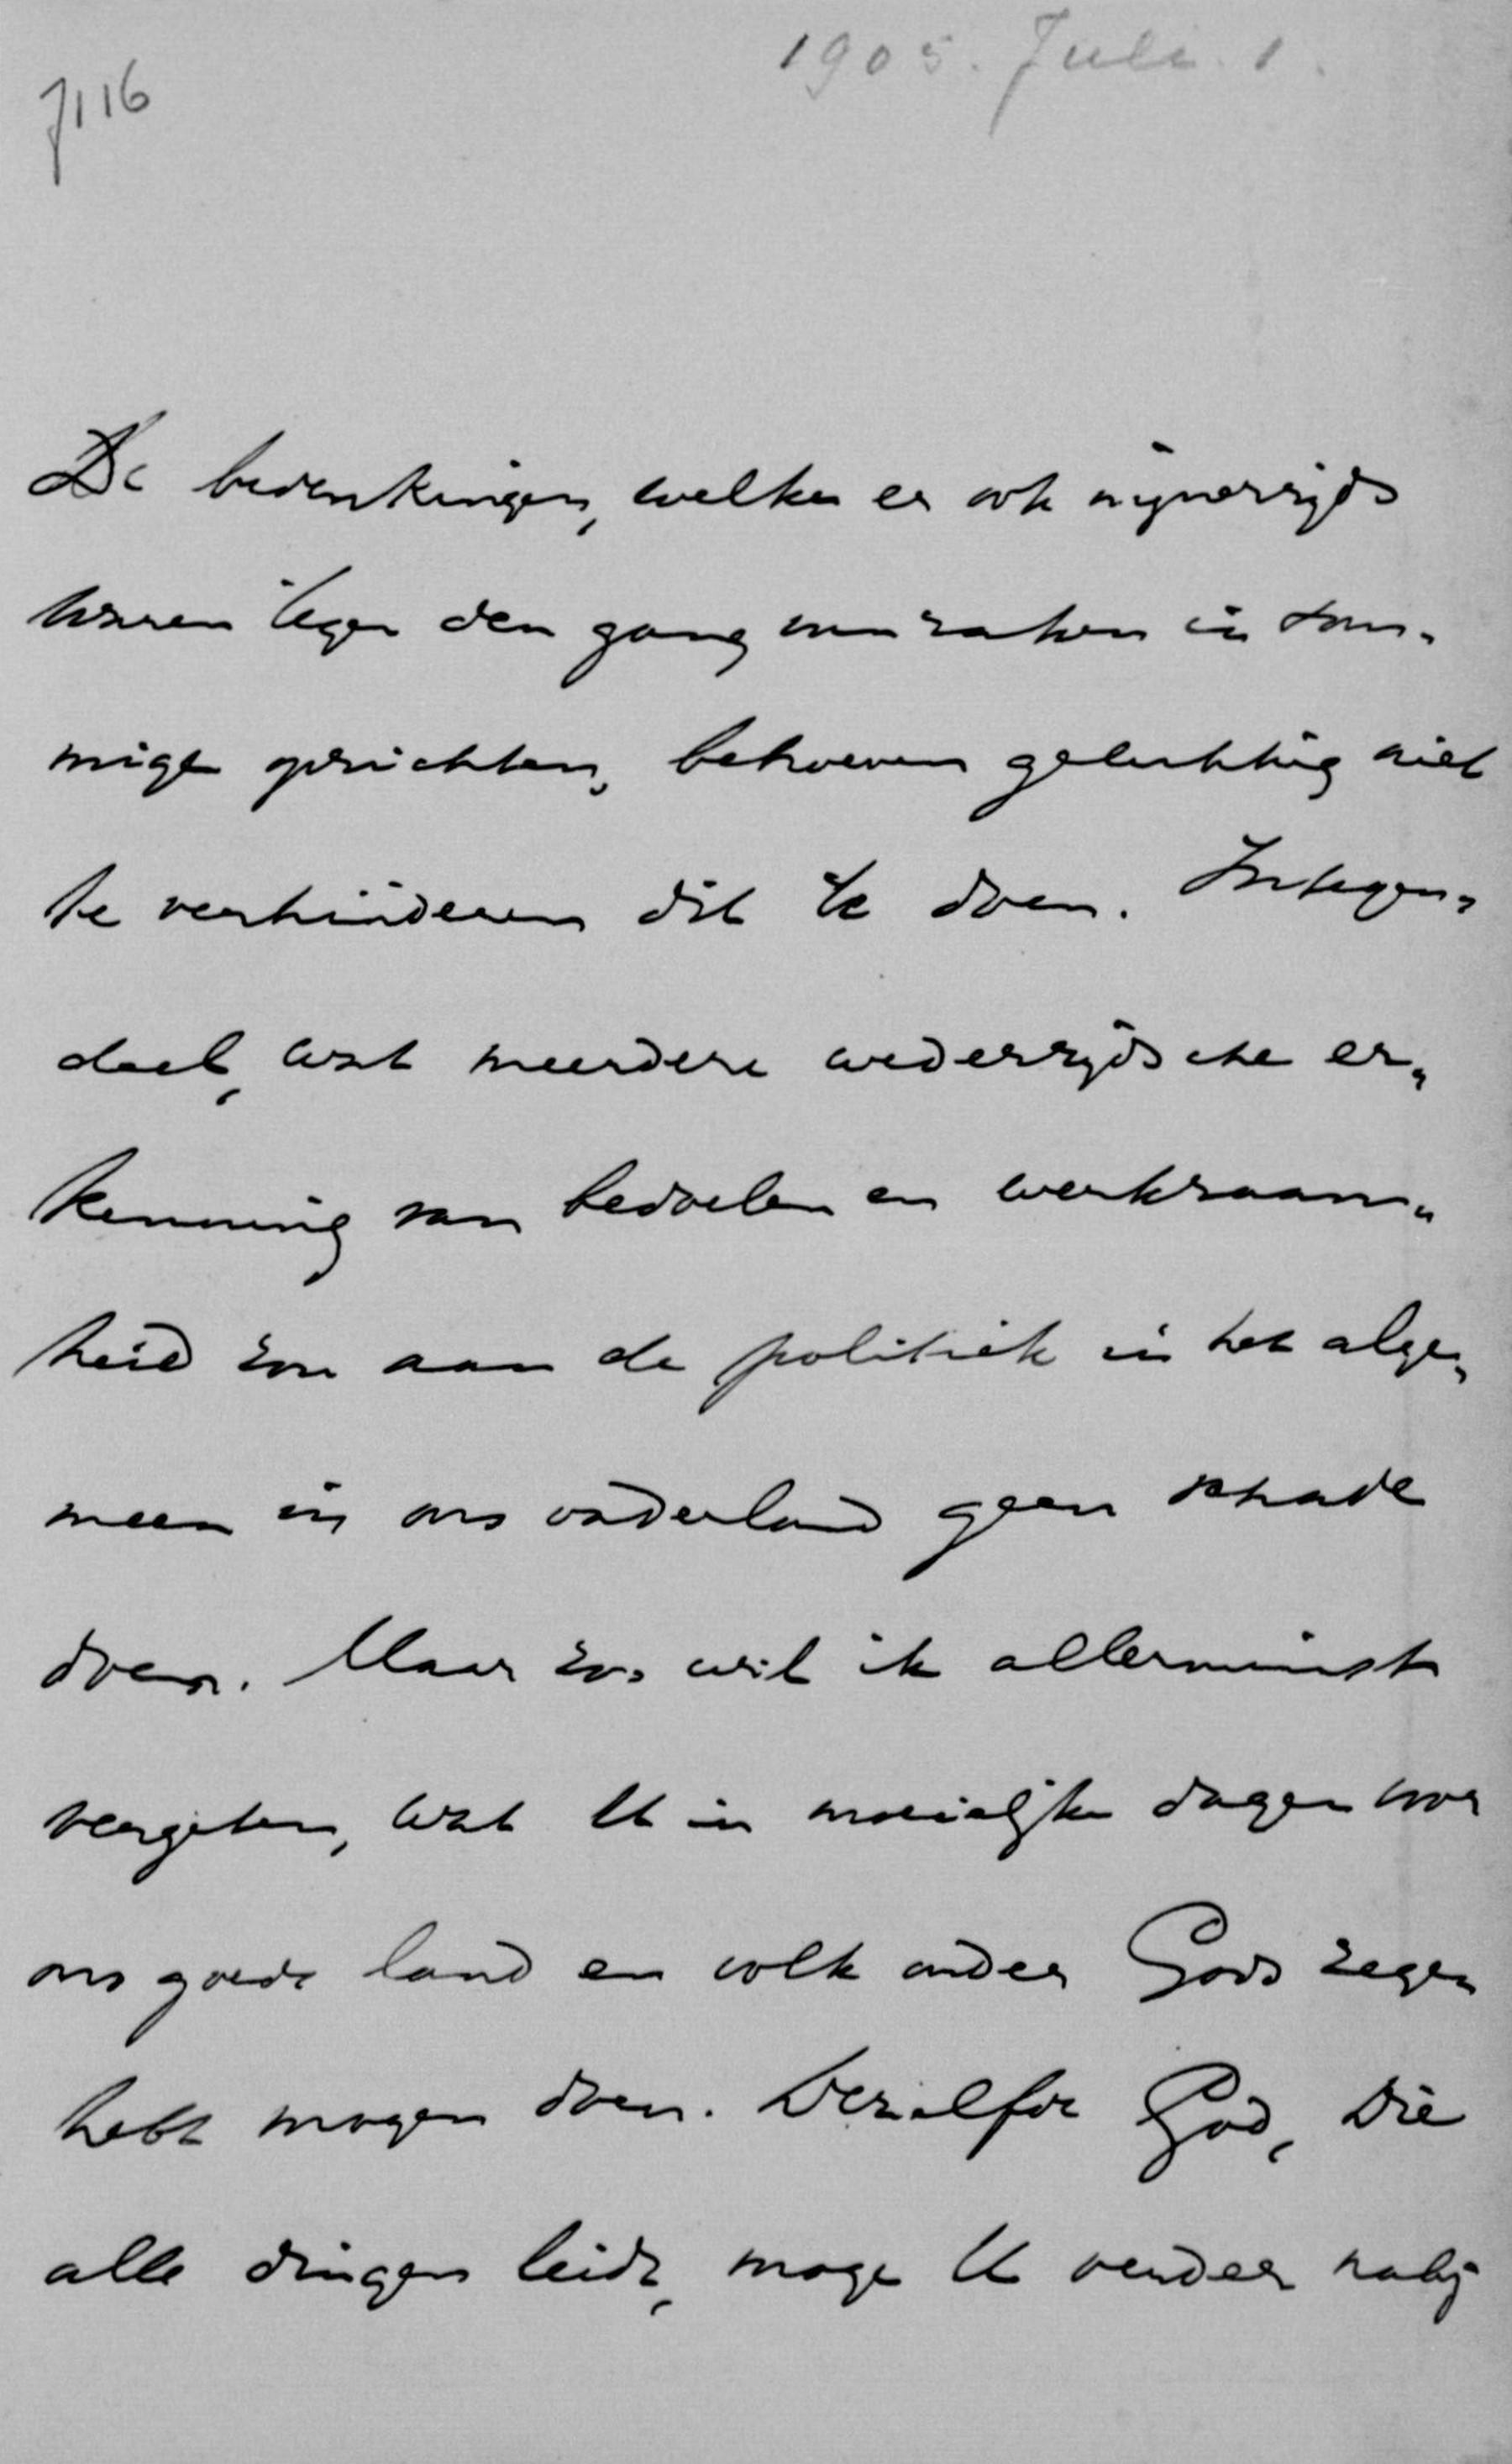 1905. Juli. 1.
7116
De bedenkingen, welke er ook mijnerzijds
waren tegen den gang van zaken in som-
mige opzichten, behoeven gelukkig niet
te verhinderen dit te doen. Integen-
deel, wat meerdere wederzijdsche er-
kenning van bedoelen en werkzaam-
heid zou aan de politiek in het alge-
meen in ons vaderland geen schade
doen. Maar zoo wil ik allerminst
vergeten, wat U in moeielijke dagen voor
ons goede land en volk onder Gods zegen
hebt mogen doen. Dezelfde God, Die
alle dingen leidt, moge U verder nabij